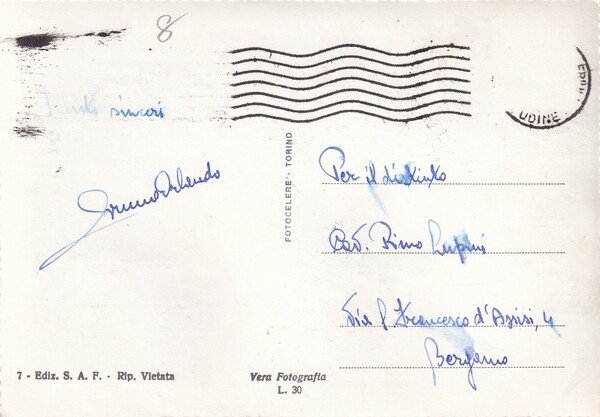 8
UDINE
Saluti sinceri
Orlando
FOTOCELERE · TORINO
Per il distinto
Cav. Rino Lupini
Via S. Francesco d'Assisi, 4
Bergamo
7 - Ediz. S. A. F. - Rip. Vietata
Vera Fotografia
L. 30